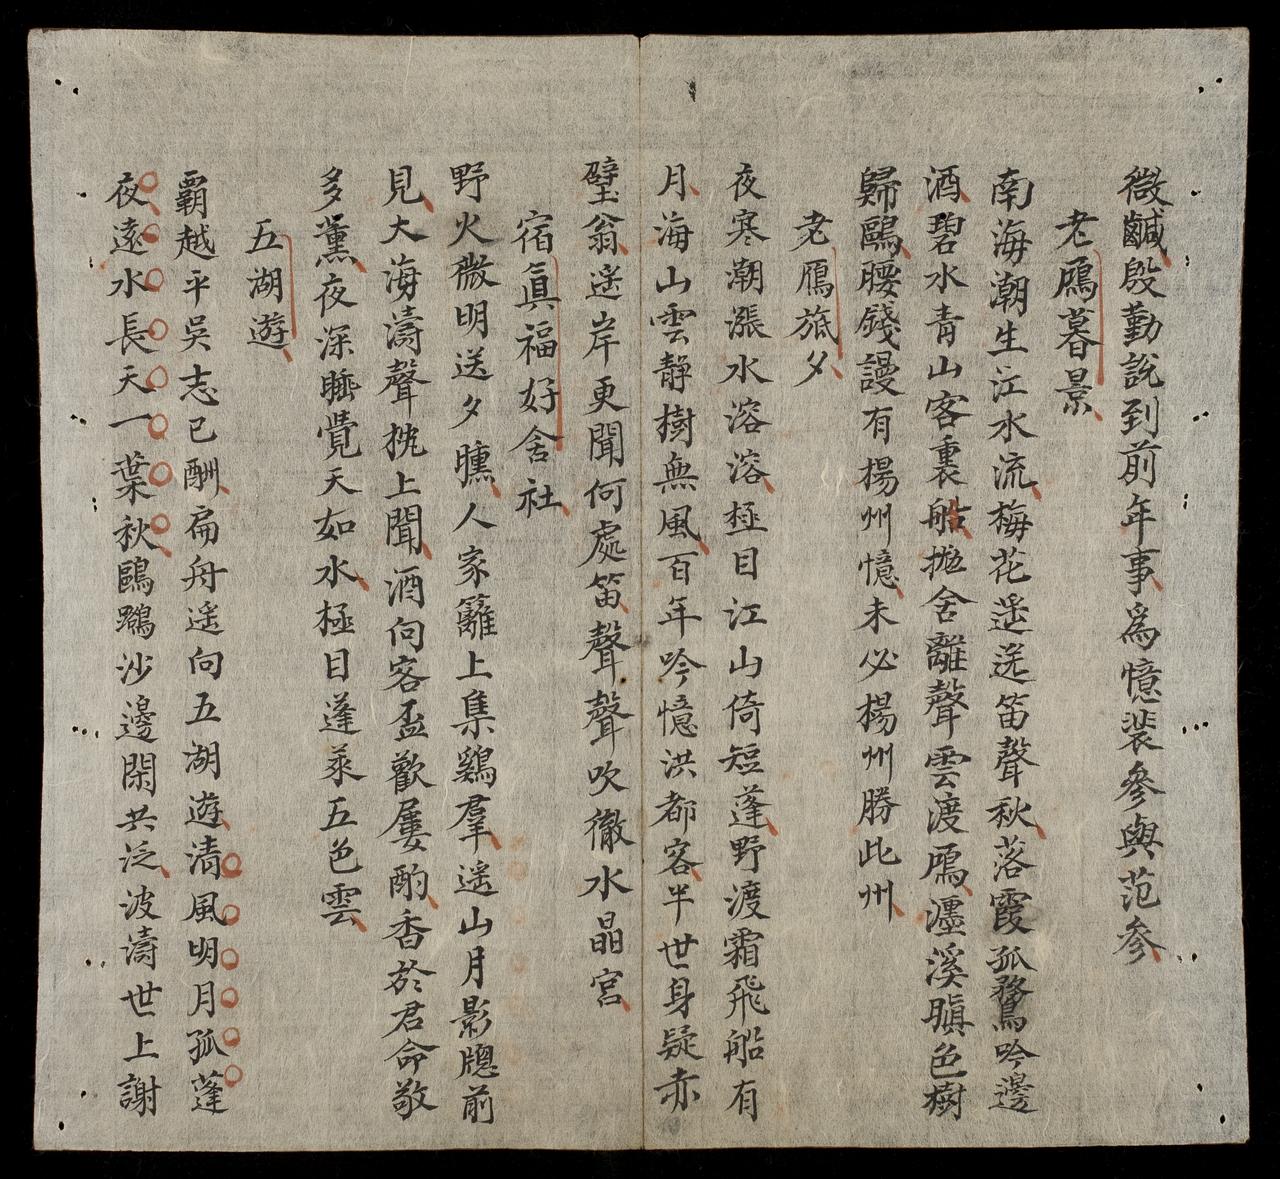 微鹹殷勤說到前年事為憶裴參與范參
老鴈暮景
南海潮生江水流梅花遥送笛聲秋落霞孤鶩吟邊
酒碧水青山客裏船拋舍離聲雲渡鴈溪暝色樹
歸鷗腰錢謾有楊州憶未必楊州勝此州
老鴈旅夕
夜寒潮漲水溶溶極目江山倚短蓬野渡霜飛船有
月海山雲静樹無風百年吟憶洪都客半世身疑赤
壁翁遥岸更聞何處笛聲聲吹徹水晶宮
宿眞福好舍社
野火微明送夕曛人家籬上集鷄羣遥山月影牕前
見大海濤聲枕上聞酒向客盃歡屢酌香於君命敬
多薰夜深睡覺天如水極目蓬萊五色雲
五湖遊
覇越平吳志已酬扁舟遥向五湖遊清風明月孤蓬
夜遠水長天一葉秋鷗鷺沙邊閑共泛波濤世上謝